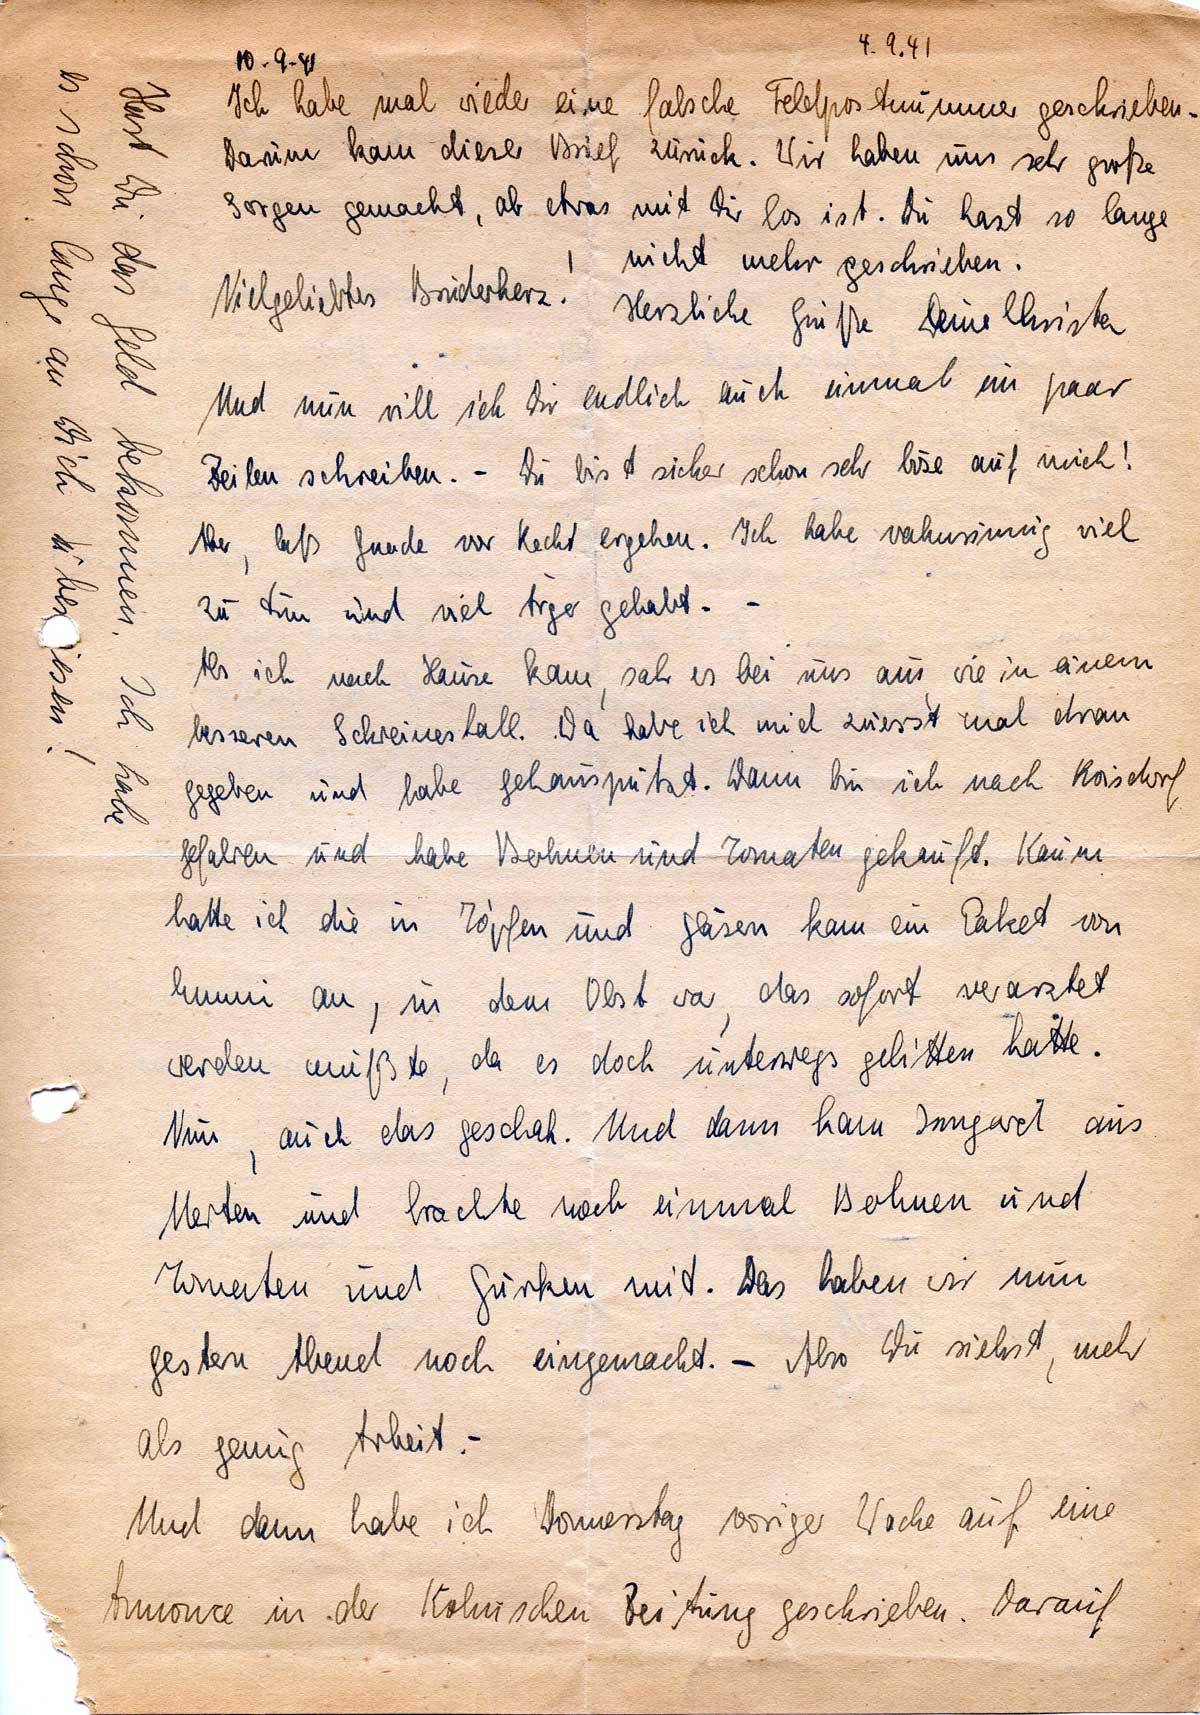 4.9.41
10-9-41
Ich habe mal wieder eine falsche Feldpostnummer geschrieben.
Darum kam dieser Brief zurück. Wir haben uns sehr große
Sorgen gemacht, ob etwas mit Dir los ist. Du hast so lange
nicht mehr geschrieben.
Herzliche Grüße Deine Christa
Vielgeliebtes Bruderherz!
Und nun will ich Dir endlich auch einmal ein paar
Zeilen schreiben. - Du bist sicher schon sehr böse auf mich!
Aber, laß Gnade vor Recht ergehen. Ich habe wahnsinnig viel
zu tun und viel Ärger gehabt. -
Als ich nach Hause kam, sah es bei uns aus, wie in einem
besseren Schweinestall. Da habe ich mich zuerst mal dran
gegeben und habe gehausputzt. Dann bin ich nach Roisdorf
gefahren und habe Bohnen und Tomaten gekauft. Kaum
hatte ich die in Töpfen und Gläsern kam ein Paket von
an, in dem Obst war, das sofort verarztet
werden mußte, da es doch unterwegs gelitten hatte.
Nun, auch das geschah. Und dann kam Irmgard aus
Merten und brachte noch einmal Bohnen und
Tomaten und Gurken mit. Das haben wir nun
gestern Abend noch eingemacht. - Also Du siehst, mehr
als genug Arbeit. -
Und dann habe ich Donnerstag voriger Woche auf eine
Annonce in der Kölnischen Zeitung geschrieben. Darauf
Hast Du das Geld bekommen. Ich habe
es schon lange an Dich überwiesen!